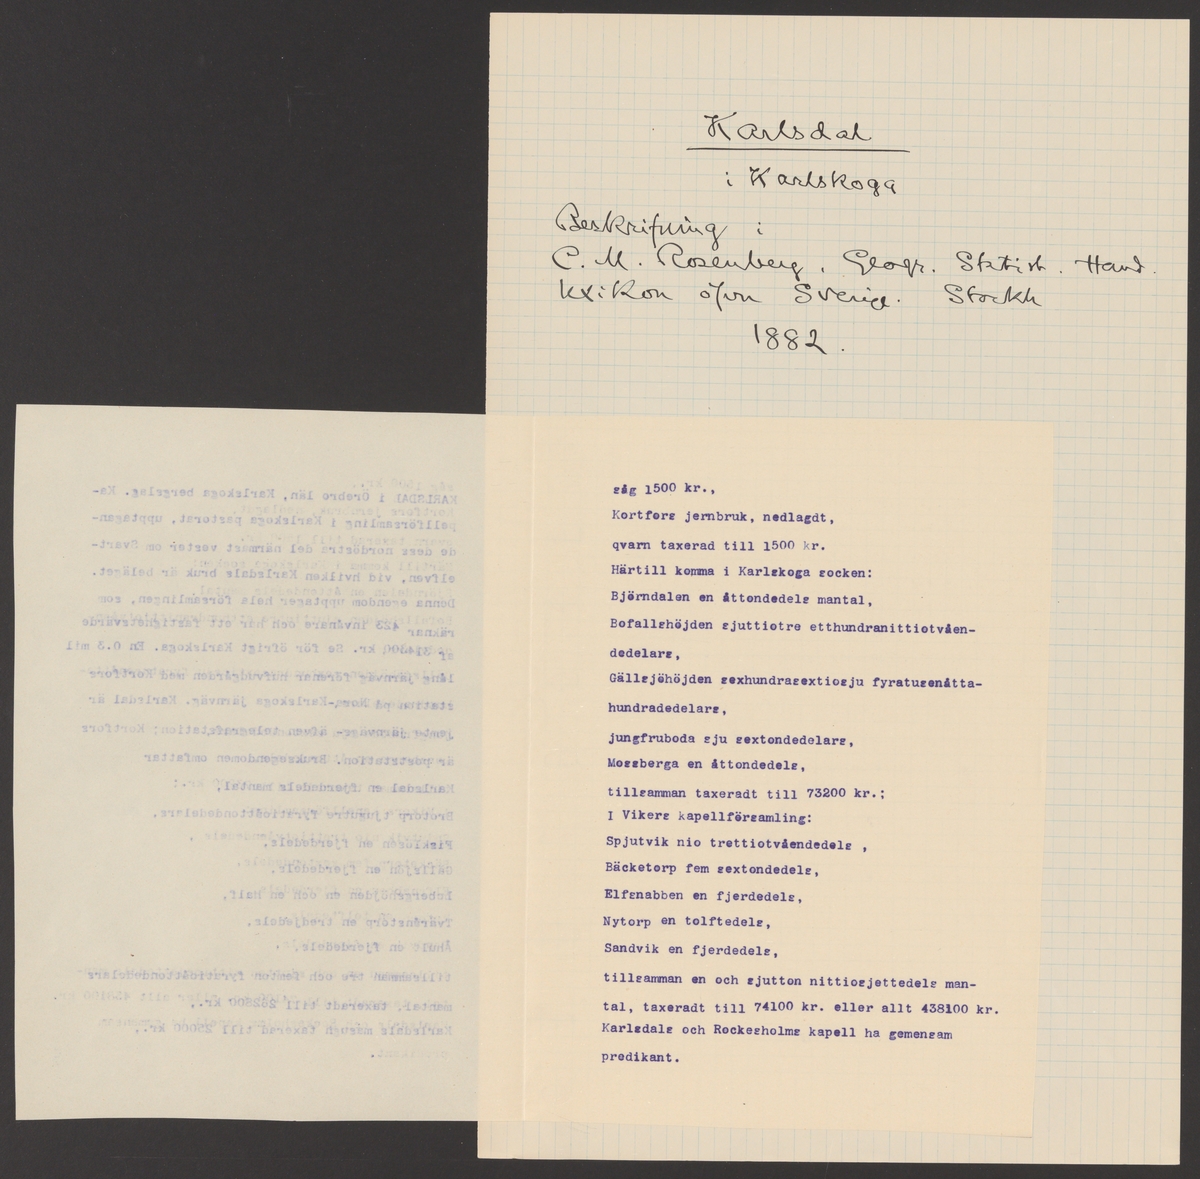 Karlsdal
i Karlskoga
Beskrifning i
C. M. Rosenberg, Geogr. Statist. Hand.
lexikon öfver Sverige. Stockh
1882.
KARLSDAL i Örebro län, Karlskoga bergslag. Ka-
pellförsamling i Karlskoga pastorat, upptagen-
de dess nordöstra del närmast vester om Svart-
elfven, vid hvilken Karlsdals bruk är beläget.
Denna egendom upptager hela församlingen, som
räknar 423 invånare och har ett fastighetsvärde
af kr. Se för öfrigt Karlskoga. En 0.3 mil
lång järnväg förenar hufvudgården med Kortfors
station på Nora-Karlskoga järnväg. Karlsdal är
jemte järnvägs- äfven telegrafstation; Kortfors
är poststation. Bruksegendomen omfattar
Karlsdal en fjerdedels mantal,
Brotorp tjugutre fyratioåttondedelars,
en fjerdedels,
Gällsjön en fjerdedels,
en och en half,
Tvärånstorp en tredjedels,
Åhult en fjerdedels,
tillsamman tre och femton fyratioåttondedelars
mantal, taxeradt till 262800 kr.,
Karlsdals masugn taxerad till 25000 kr.,
såg 1500 kr.,
Kortfors jernbruk, nedlagdt,
qvarn taxerad till 1500 kr.
Härtill komma i Karlskoga socken:
Björndalen en åttondedels mantal,
Bofallshöjden sjuttiotre etthundranittiotvåen-
dedelars,
Gällsjöhöjden sexhundrasextiosju fyratusenåtta-
hundradedelars,
jungfruboda sju sextondedelars,
Mossberga en åttondedels,
tillsamman taxeradt till 73200 kr.;
I Vikers kapellförsamling:
Spjutvik nio trettiotvåendedels ,
Bäcketorp fem sextondedels,
Elfsnabben en fjerdedels,
Nytorp en tolftedels,
Sandvik en fjerdedels,
tillsamman en och sjutton nittiosjettedels man-
tal, taxeradt till 74100 kr. eller allt 438100 kr.
Karlsdals och Rockesholms kapell ha gemensam
predikant.